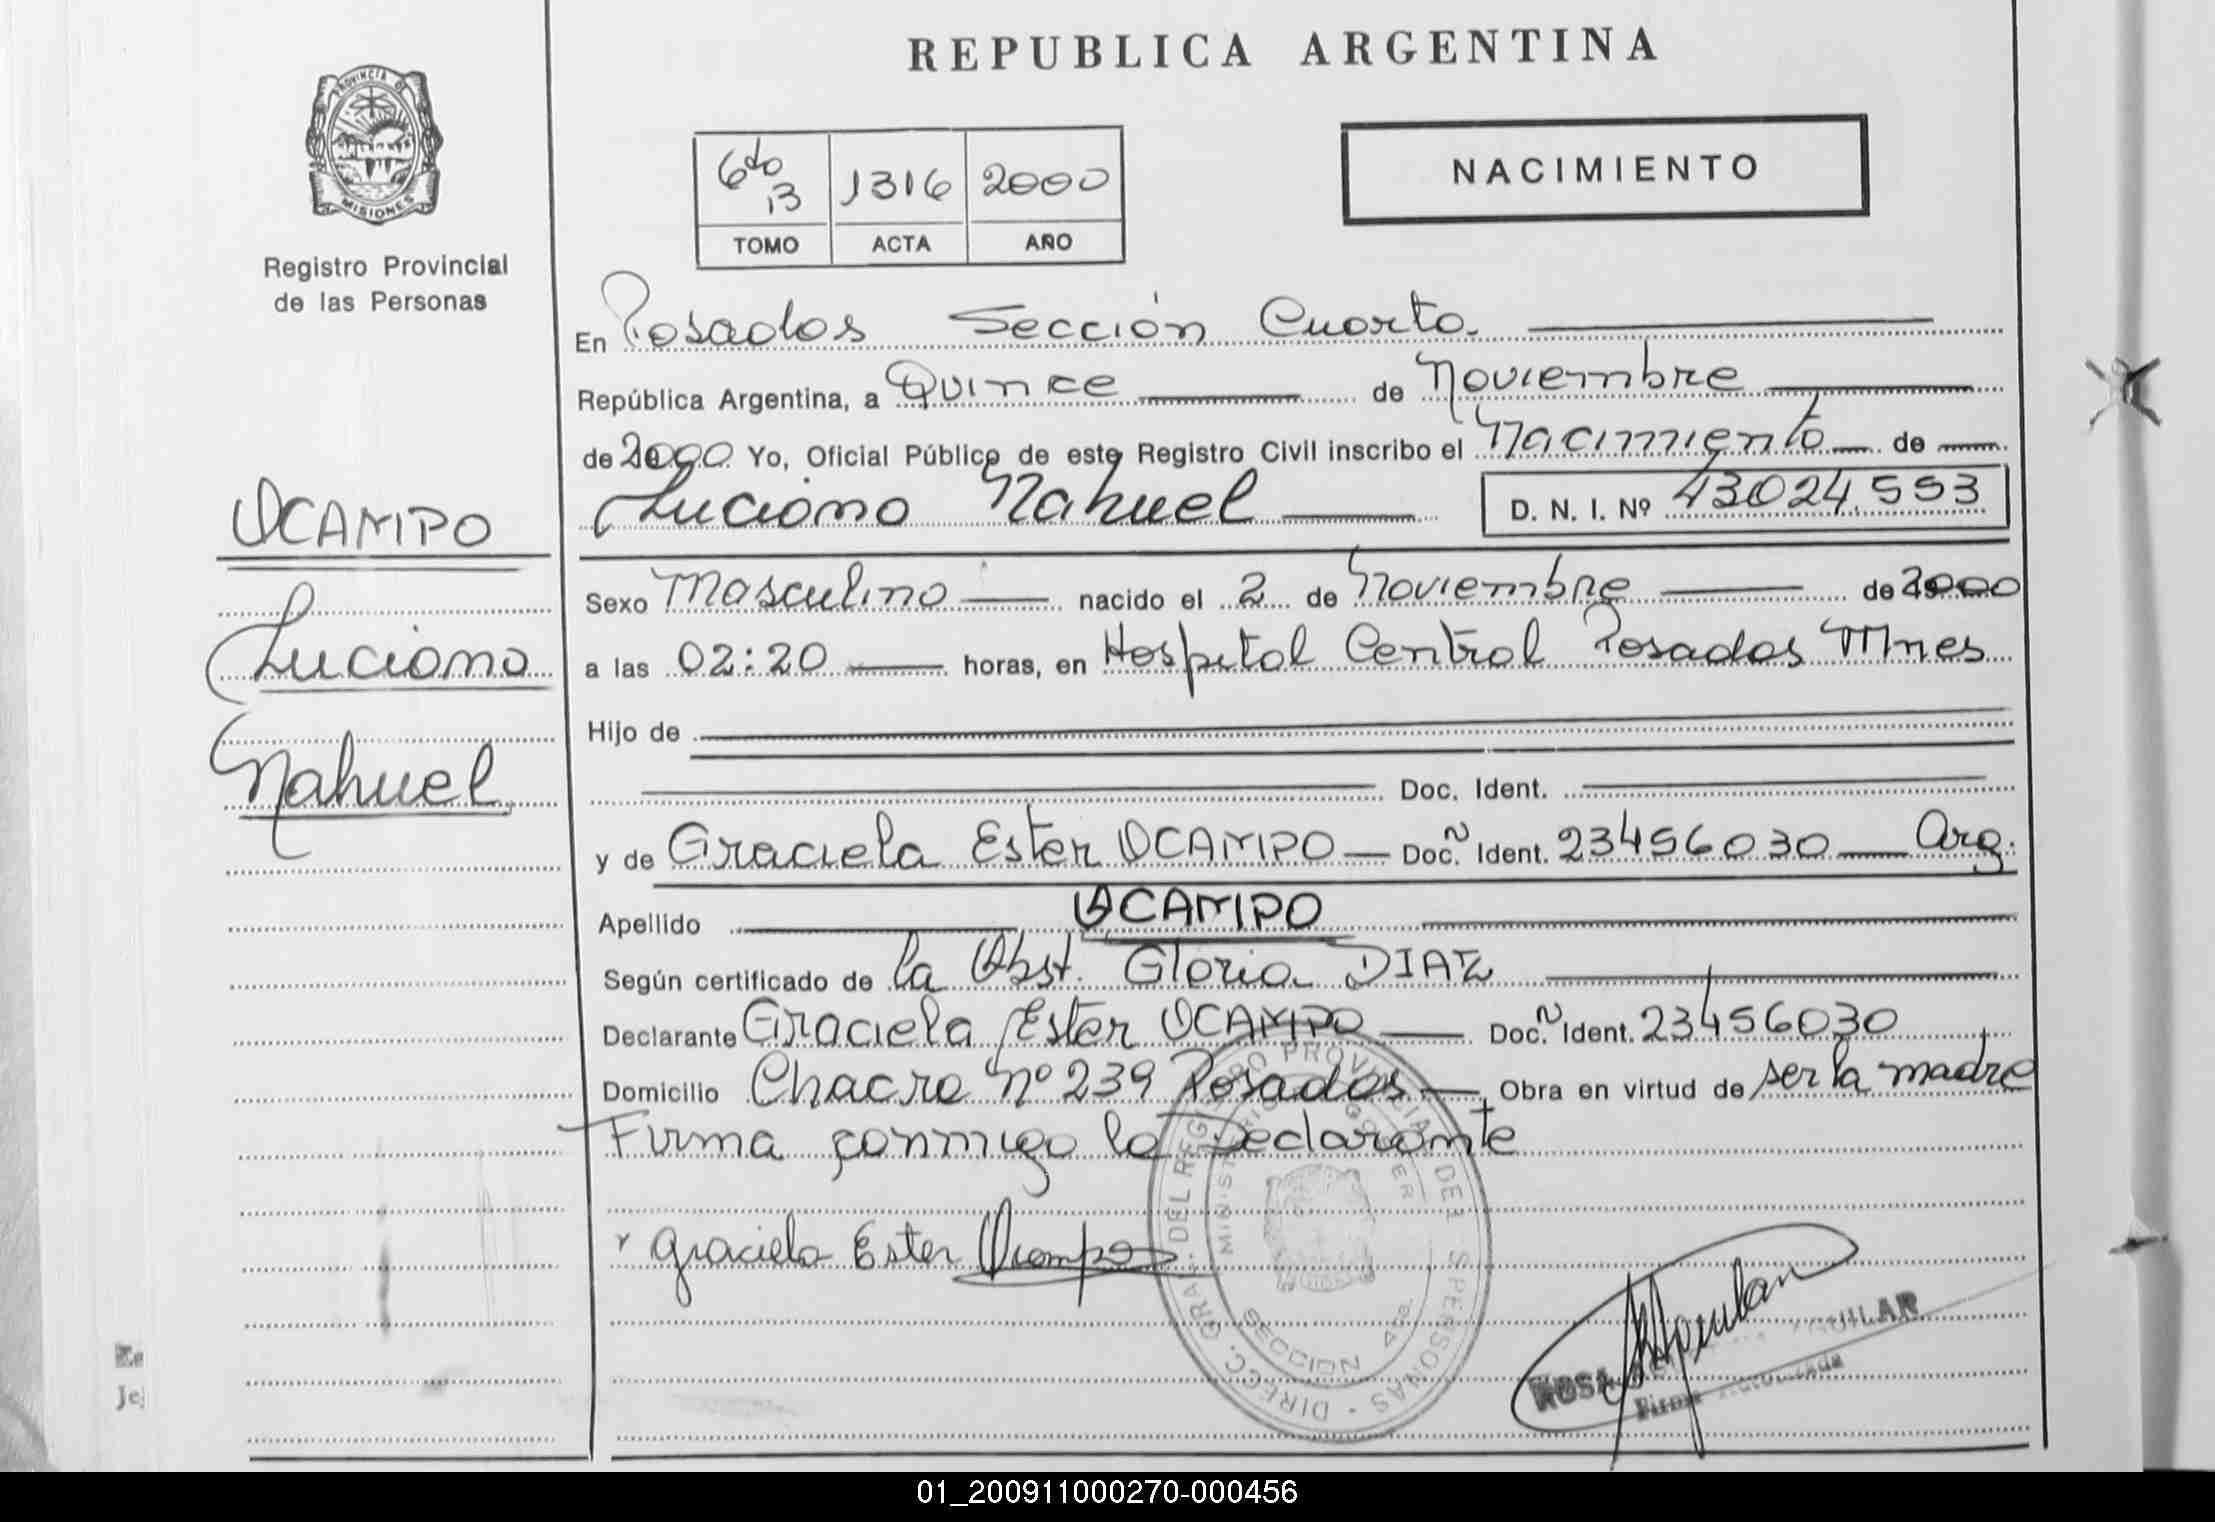 REPUBLICA ARGENTINA
PROVINCIA DE
MISIONES
Registro Provincial
de las Personas
6to 13 1316 2000
TOMO ACTA AÑO
NACIMIENTO
En Posadas Sección Cuarta.
República Argentina, a Quince de Noviembre
de 2000 Yo, Oficial Público de este Registro Civil inscribo el Nacimiento de
Luciano Nahuel D. N. I. Nº 43024.553
OCAMPO
Luciano
Nahuel
Sexo Masculino nacido el 2 de Noviembre de 2000
a las 02:20 horas, en Hospital Central Posadas Mnes
Hijo de
Doc. Ident.
y de Graciela Ester OCAMPO Doc. Ident. 23456030 Arg.
Apellido OCAMPO
Según certificado de la Obst. Gloria DIAZ
Declarante Graciela Ester OCAMPO Doc. Ident. 23456030
Domicilio Chacra Nº 239 Posadas Obra en virtud de ser la madre
Firma conmigo la Declarante
Graciela Ester Ocampo
DIRECC. GRAL. DEL REGISTRO PROVINCIAL DE LAS PERSONAS
SECCION 4ta.
ROSA AGUILAR
Firma Autorizada
01_200911000270-000456